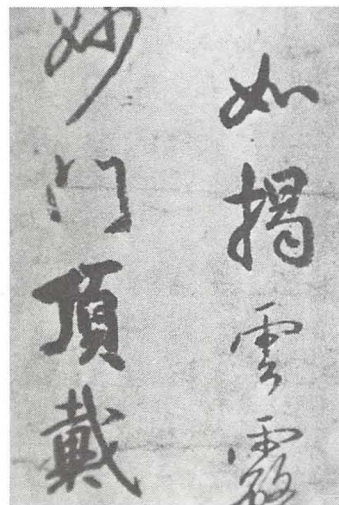 如揭雲霧
妙门頂戴